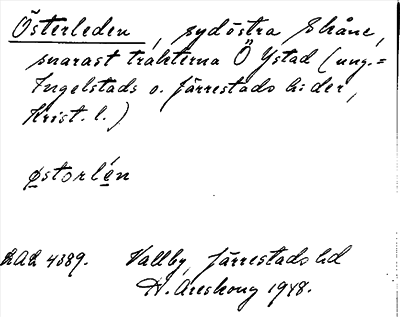 Österleden, sydöstra Skåne,
snarast trakterna Ö Ystad (ung. =
Ingelstads o. Järrestads h:der,
Krist. l.)
østorlén
LAL 4389. Vallby, Järrestads hd
N. Areskoug 1948.